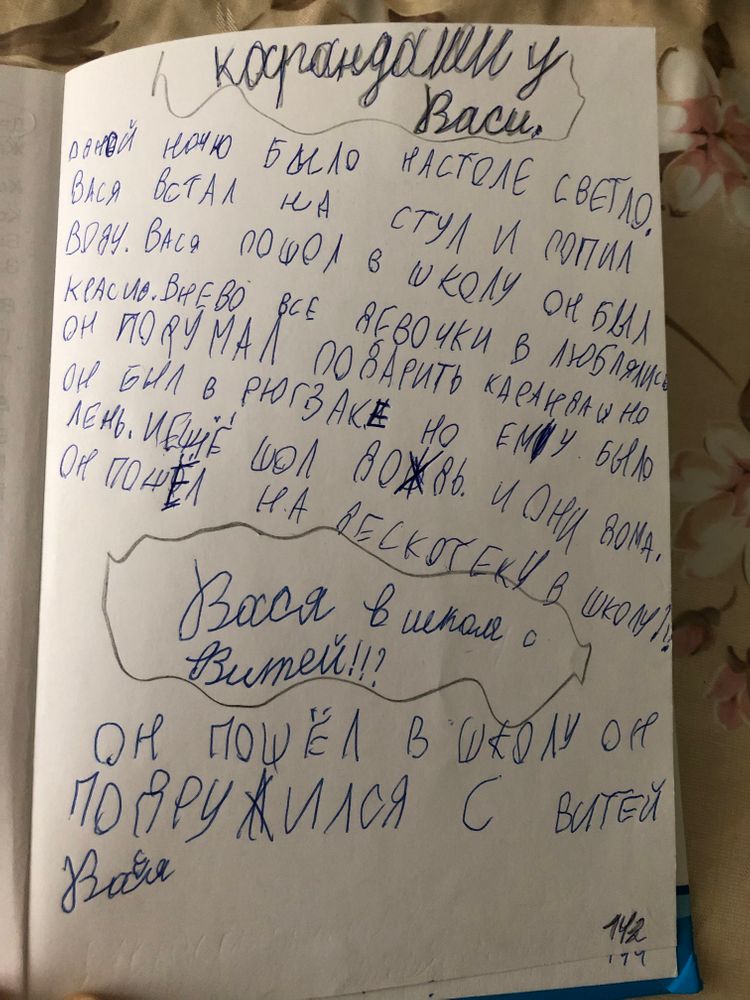 карандаши у
Васи.
ОДНОЙ НОЧЮ БЫЛО НАСТОЛЕ СВЕТЛО.
ВАСЯ ВСТАЛ НА СТУЛ И ПОПИЛ
ВОДУ. ВАСЯ ПОШОЛ В ШКОЛУ ОН БЫЛ
КРАСИВ. ВНЕВО ВСЕ ДЕВОЧКИ В ЛЮБЛЯЛИСЬ
ОН ПОДУМАЛ ПОДАРИТЬ КАРАНДАШ НО
ОН БЫЛ В РЮГЗАКЕ НО ЕМУ БЫЛО
ЛЕНЬ. ИЕЩЁ ШОЛ ДОЖДЬ. И ОНИ ДОМА.
ОН ПОШЁЛ НА ДЕСКОТЕКУ В ШКОЛУ!!
Вася в школа с
Витей!!?
ОН ПОШЁЛ В ШКОЛУ ОН
ПОДРУЖИЛСЯ С ВИТЕЙ
Вася
142